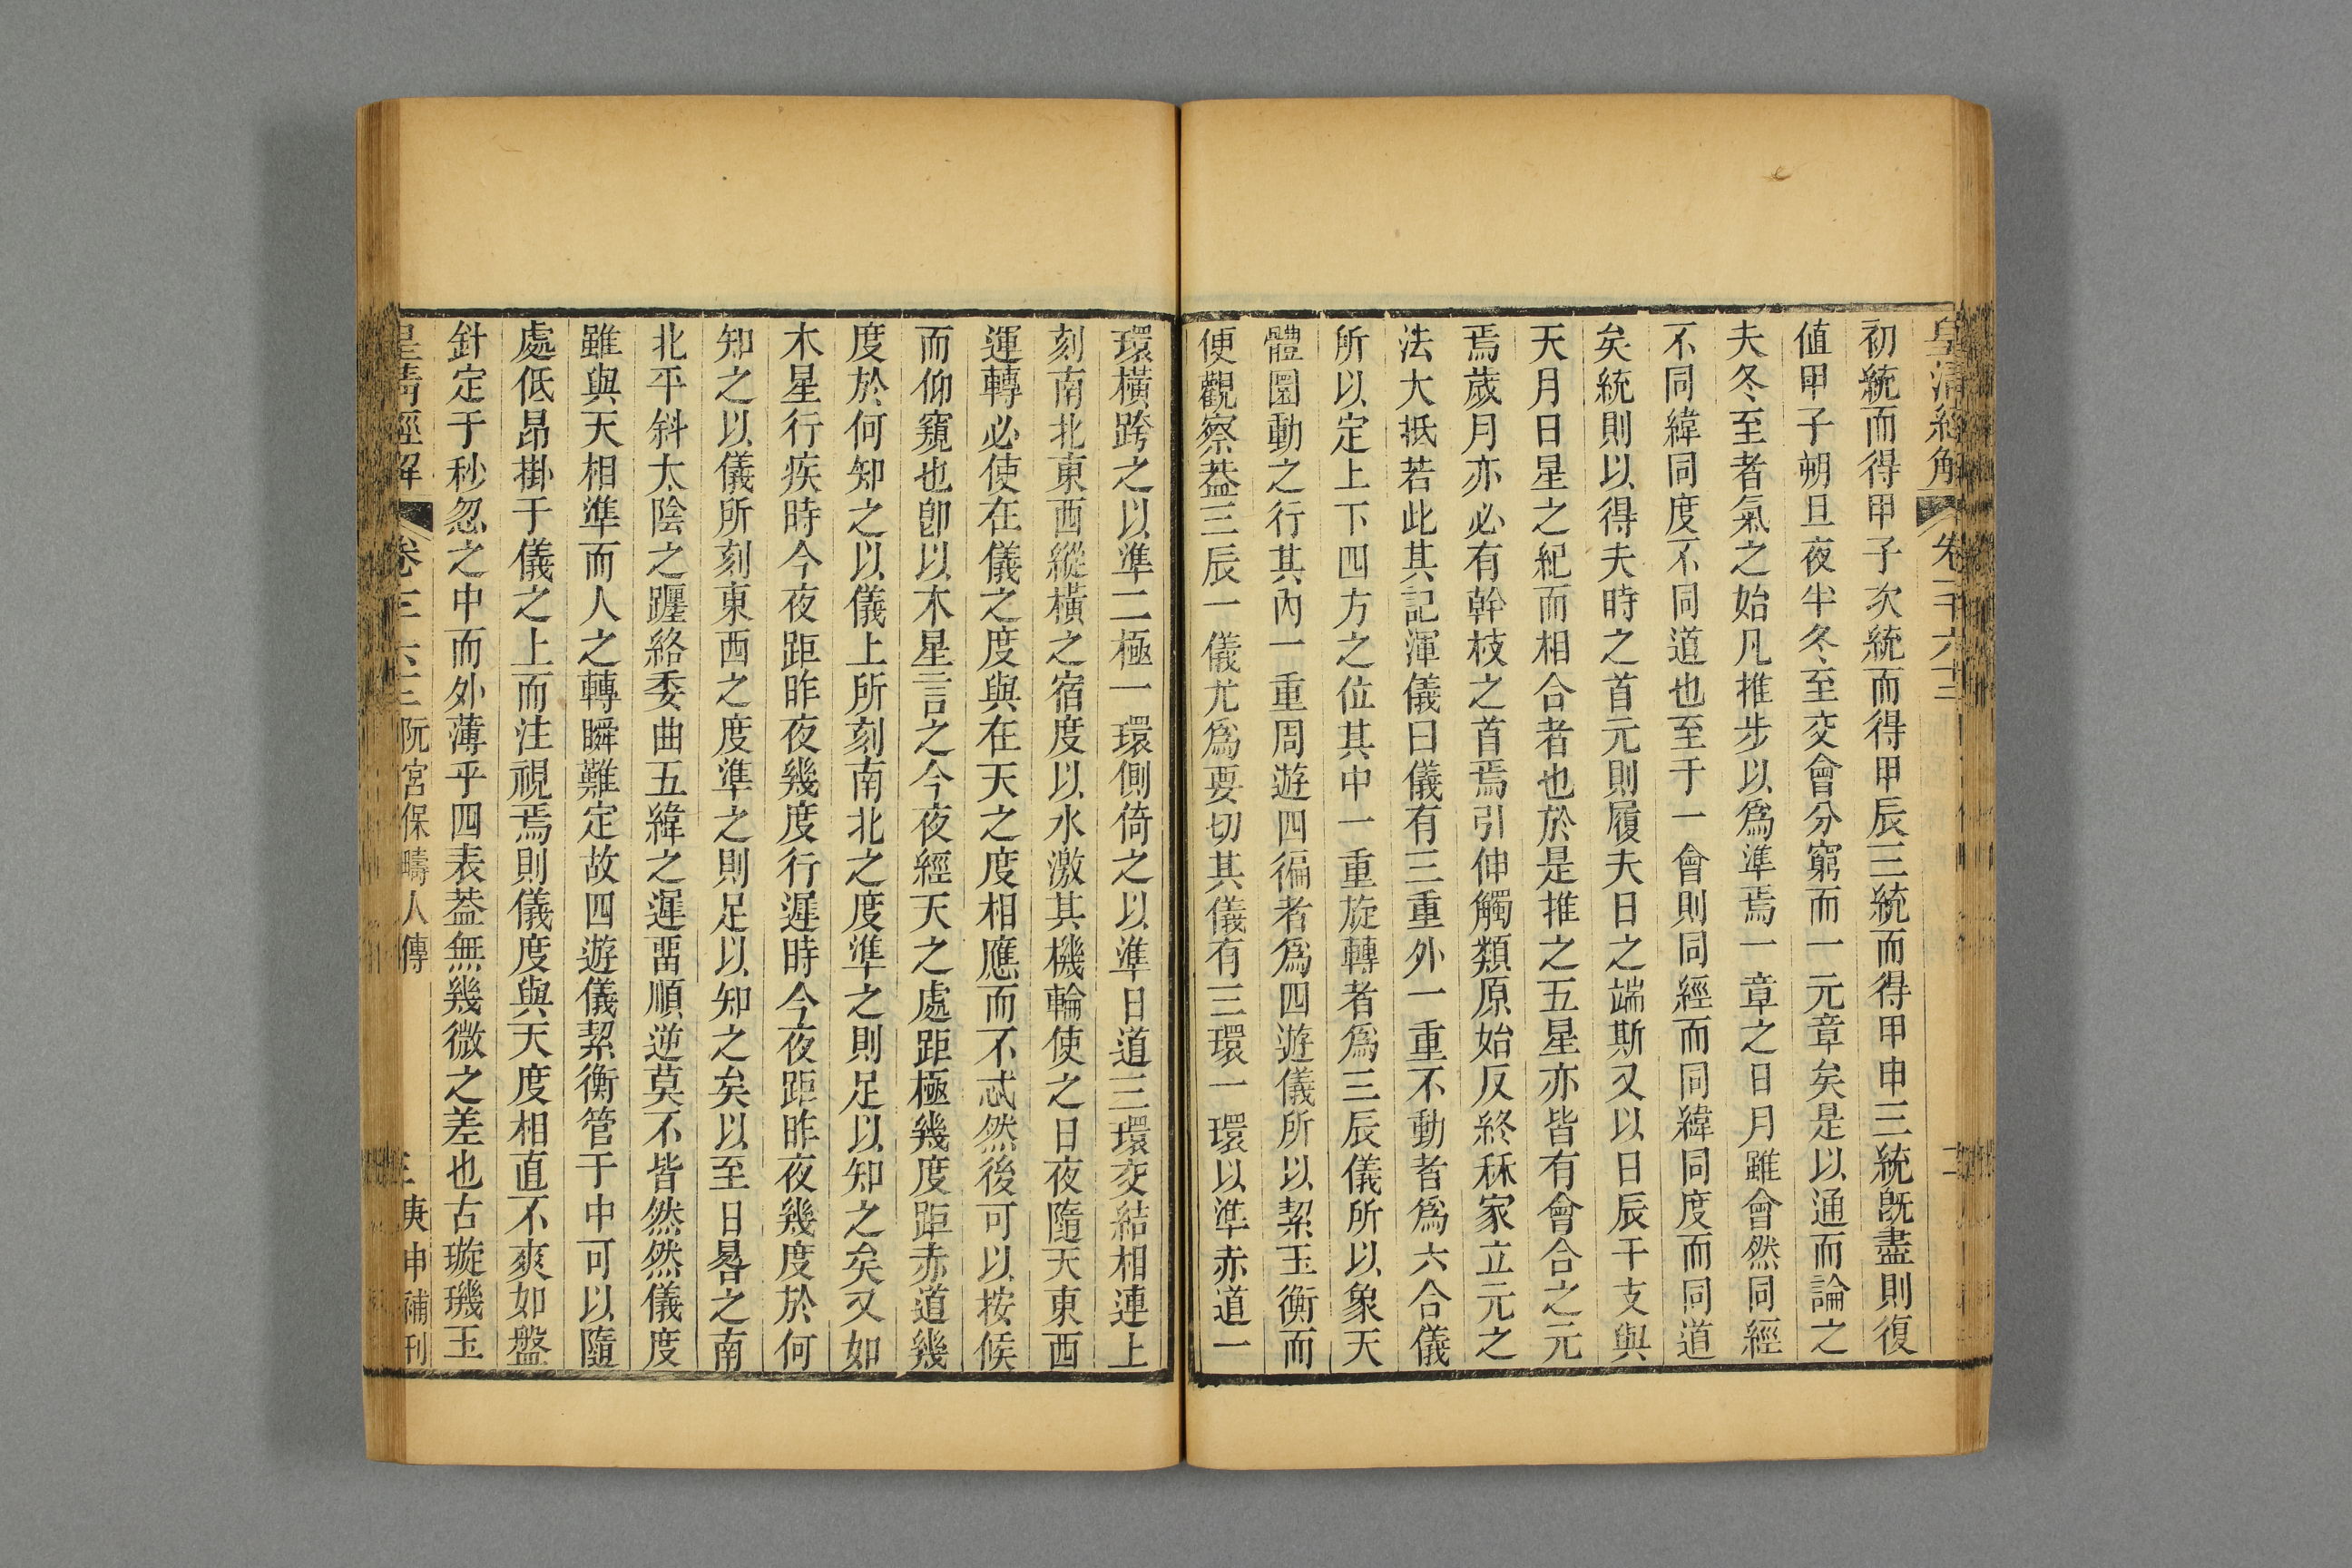 皇清經解 卷千六三 二
初統而得甲子次統而得甲辰三統而得甲申三統旣盡則復
値甲子朔旦夜半冬至交會分窮而一元章矣是以通而論之
夫冬至者氣之始凡推步以爲準焉一章之日月雖會然同經
不同緯同度不同道也至于一會則同經而同緯同度而同道
矣統則以得夫時之首元則履夫日之端斯又以日辰干支與
天月日星之紀而相合者也於是推之五星亦皆有會合之元
焉歲月亦必有幹枝之首焉引伸觸類原始反終秝家立元之
法大抵若此其記渾儀曰儀有三重外一重不動者爲六合儀
所以定上下四方之位其中一重旋轉者爲三辰儀所以象天
體圜動之行其內一重周遊四徧者爲四遊儀所以挈玉衡而
便觀察葢三辰一儀尤爲要切其儀有三環一環以準赤道一
環橫跨之以準二極一環側倚之以準日道三環交結相連上
刻南北東西縱橫之宿度以水激其機輪使之日夜隨天東西
運轉必使在儀之度與在天之度相應而不忒然後可以按候
而仰窺也卽以木星言之今夜經天之處距極幾度距赤道幾
度於何知之以儀上所刻南北之度準之則足以知之矣又如
木星行疾時今夜距昨夜幾度行遲時今夜距昨夜幾度於何
知之以儀所刻東西之度準之則足以知之矣以至日晷之南
北平斜太陰之躔絡委曲五緯之遲畱順逆莫不皆然然儀度
雖與天相準而人之轉瞬難定故四遊儀挈衡管于中可以隨
處低昂掛于儀之上而注視焉則儀度與天度相直不爽如盤
針定于秒忽之中而外薄乎四表葢無幾微之差也古璇璣玉
皇清經解 卷千六三 阮宮保疇人傳 三 庚申補刊